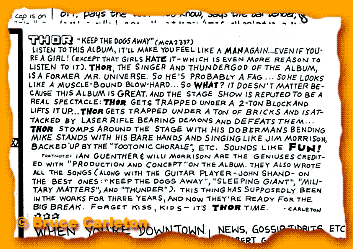 cap is on
THOR "KEEP THE DOGS AWAY" (MCA2337)
LISTEN TO THIS ALBUM, IT'LL MAKE YOU FEEL LIKE A MAN AGAIN...EVEN IF YOU'-
RE A GIRL! (EXCEPT THAT GIRLS HATE IT-WHICH IS EVEN MORE REASON TO
LISTEN TO IT). THOR, THE SINGER AND THUNDERGOD OF THE ALBUM,
IS A FORMER MR. UNIVERSE. SO HE'S PROBABLY A FAG... SO HE LOOKS
LIKE A MUSCLE-BOUND BLOW-HARD... SO WHAT? IT DOESN'T MATTER BE-
CAUSE THIS ALBUM IS GREAT, AND THE STAGE SHOW IS REPUTED TO BE A
REAL SPECTACLE: THOR GETS TRAPPED UNDER A 2-TON BLOCK AND
LIFTS IT UP...THOR GETS TRAPPED UNDER A TON OF BRICKS AND IS AT-
TACKED BY LASER RIFLE BEARING DEMONS AND DEFEATS THEM...
THOR STOMPS AROUND THE STAGE WITH HIS DOBERMANS BENDING
MIKE STANDS WITH HIS BARE HANDS AND SINGING LIKE JIM MORRISON,
BACKED UP BY THE "TOOTONIC CHORALE", ETC. SOUNDS LIKE FUN!
FOOTNOTE: IAN GUENTHER & WILLI MORRISON ARE THE GENIUSES CREDIT-
ED WITH "PRODUCTION AND CONCEPT" ON THE ALBUM. THEY ALSO WROTE
ALL THE SONGS (ALONG WITH THE GUITAR PLAYER-JOHN SHAND-ON
THE BEST ONES: "KEEP THE DOGS AWAY", "SLEEPING GIANT", "MILI-
TARY MATTERS", AND "THUNDER"). THIS THING HAS SUPPOSEDLY BEEN
IN THE WORKS FOR THREE YEARS, AND NOW THEY'RE READY FOR THE
BIG BREAK. FORGET KISS, KIDS-IT'S THOR TIME. -CARLETON
WHEN YOU'RE DOWNTOWN
NEWS, GOSSIP, TIDBITS, ETC